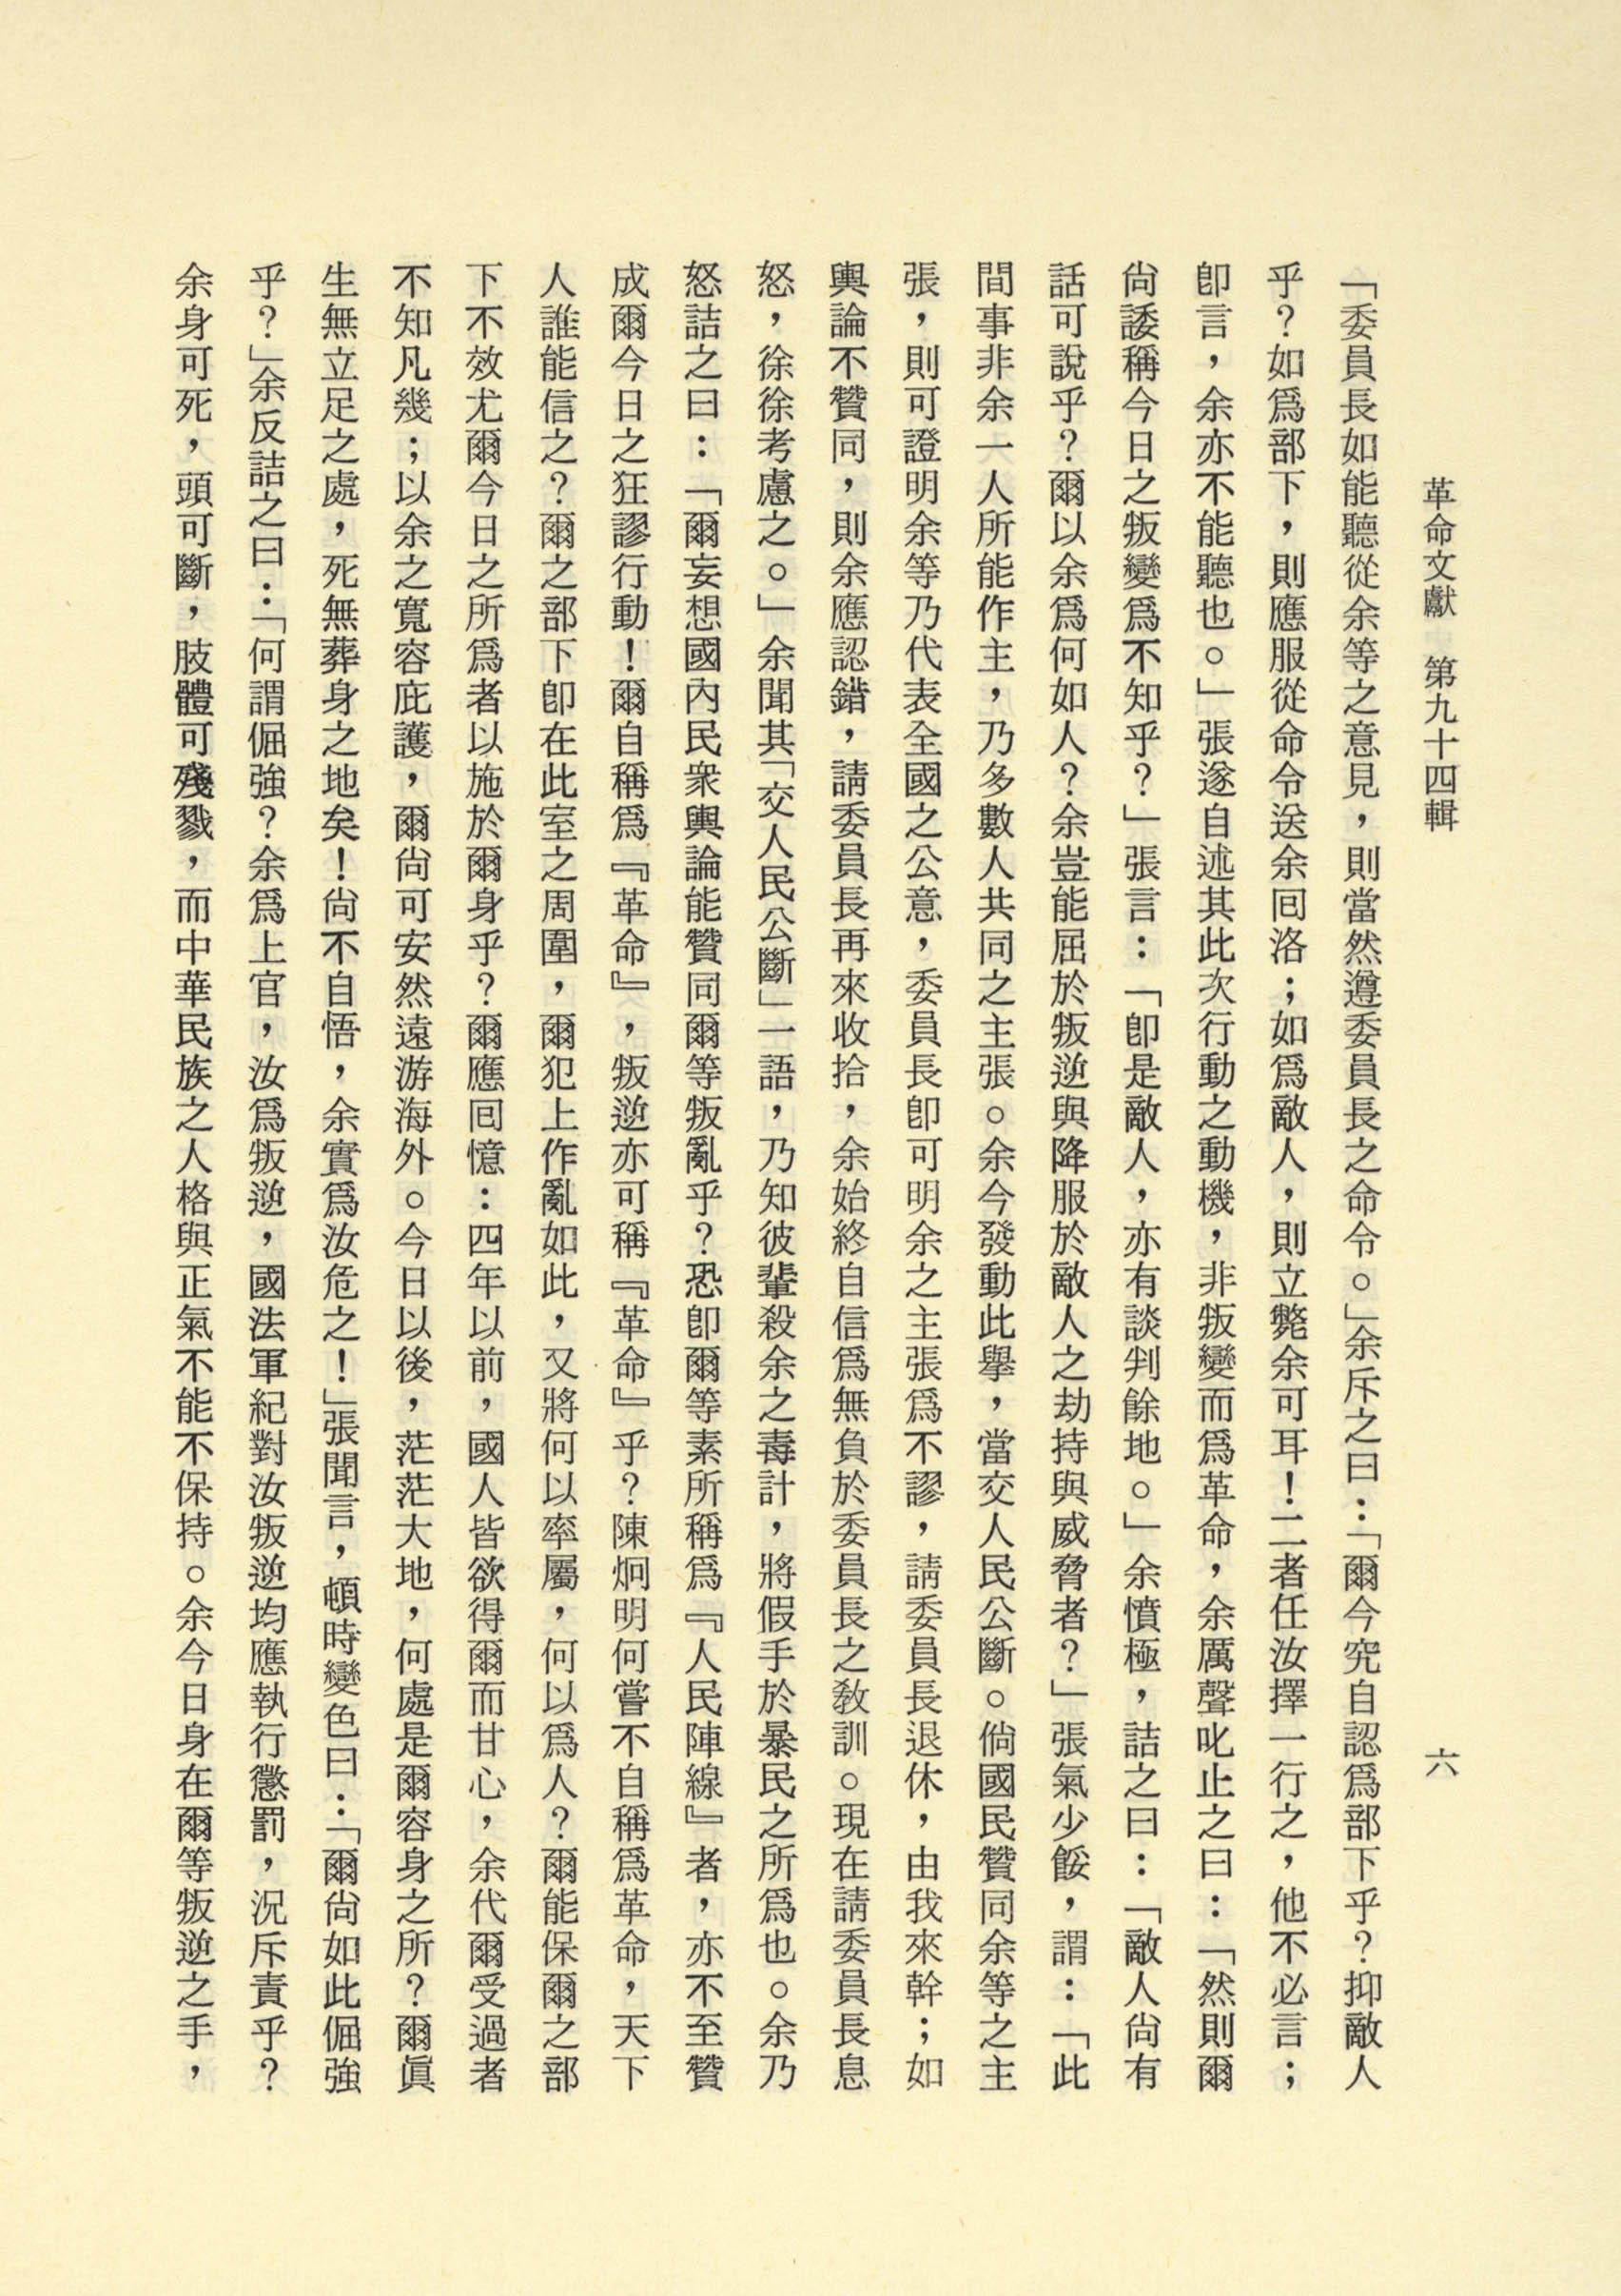 革命文獻　第九十四輯
六
「委員長如能聽從余等之意見，則當然遵委員長之命令。」余斥之曰：「爾今究自認爲部下乎？抑敵人
乎？如爲部下，則應服從命令送余囘洛；如爲敵人，則立斃余可耳！二者任汝擇一行之，他不必言；
卽言，余亦不能聽也。」張遂自述其此次行動之動機，非叛變而爲革命，余厲聲叱止之曰：「然則爾
尙諉稱今日之叛變爲不知乎？」張言：「卽是敵人，亦有談判餘地。」余憤極，詰之曰：「敵人尙有
話可說乎？爾以余爲何如人？余豈能屈於叛逆與降服於敵人之劫持與威脅者？」張氣少餒，謂：「此
間事非余一人所能作主，乃多數人共同之主張。余今發動此擧，當交人民公斷。倘國民贊同余等之主
張，則可證明余等乃代表全國之公意，委員長卽可明余之主張爲不謬，請委員長退休，由我來幹；如
輿論不贊同，則余應認錯，請委員長再來收拾，余始終自信爲無負於委員長之敎訓。現在請委員長息
怒，徐徐考慮之。」余聞其「交人民公斷」一語，乃知彼輩殺余之毒計，將假手於暴民之所爲也。余乃
怒詰之曰：「爾妄想國內民衆輿論能贊同爾等叛亂乎？恐卽爾等素所稱爲『人民陣線』者，亦不至贊
成爾今日之狂謬行動！爾自稱爲『革命』，叛逆亦可稱『革命』乎？陳炯明何嘗不自稱爲革命，天下
人誰能信之？爾之部下卽在此室之周圍，爾犯上作亂如此，又將何以率屬，何以爲人？爾能保爾之部
下不效尤爾今日之所爲者以施於爾身乎？爾應囘憶：四年以前，國人皆欲得爾而甘心，余代爾受過者
不知凡幾；以余之寬容庇護，爾尙可安然遠游海外。今日以後，茫茫大地，何處是爾容身之所？爾眞
生無立足之處，死無葬身之地矣！尙不自悟，余實爲汝危之！」張聞言，頓時變色曰：「爾尙如此倔強
乎？」余反詰之曰：「何謂倔強？余爲上官，汝爲叛逆，國法軍紀對汝叛逆均應執行懲罰，況斥責乎？
余身可死，頭可斷，肢體可殘戮，而中華民族之人格與正氣不能不保持。余今日身在爾等叛逆之手，